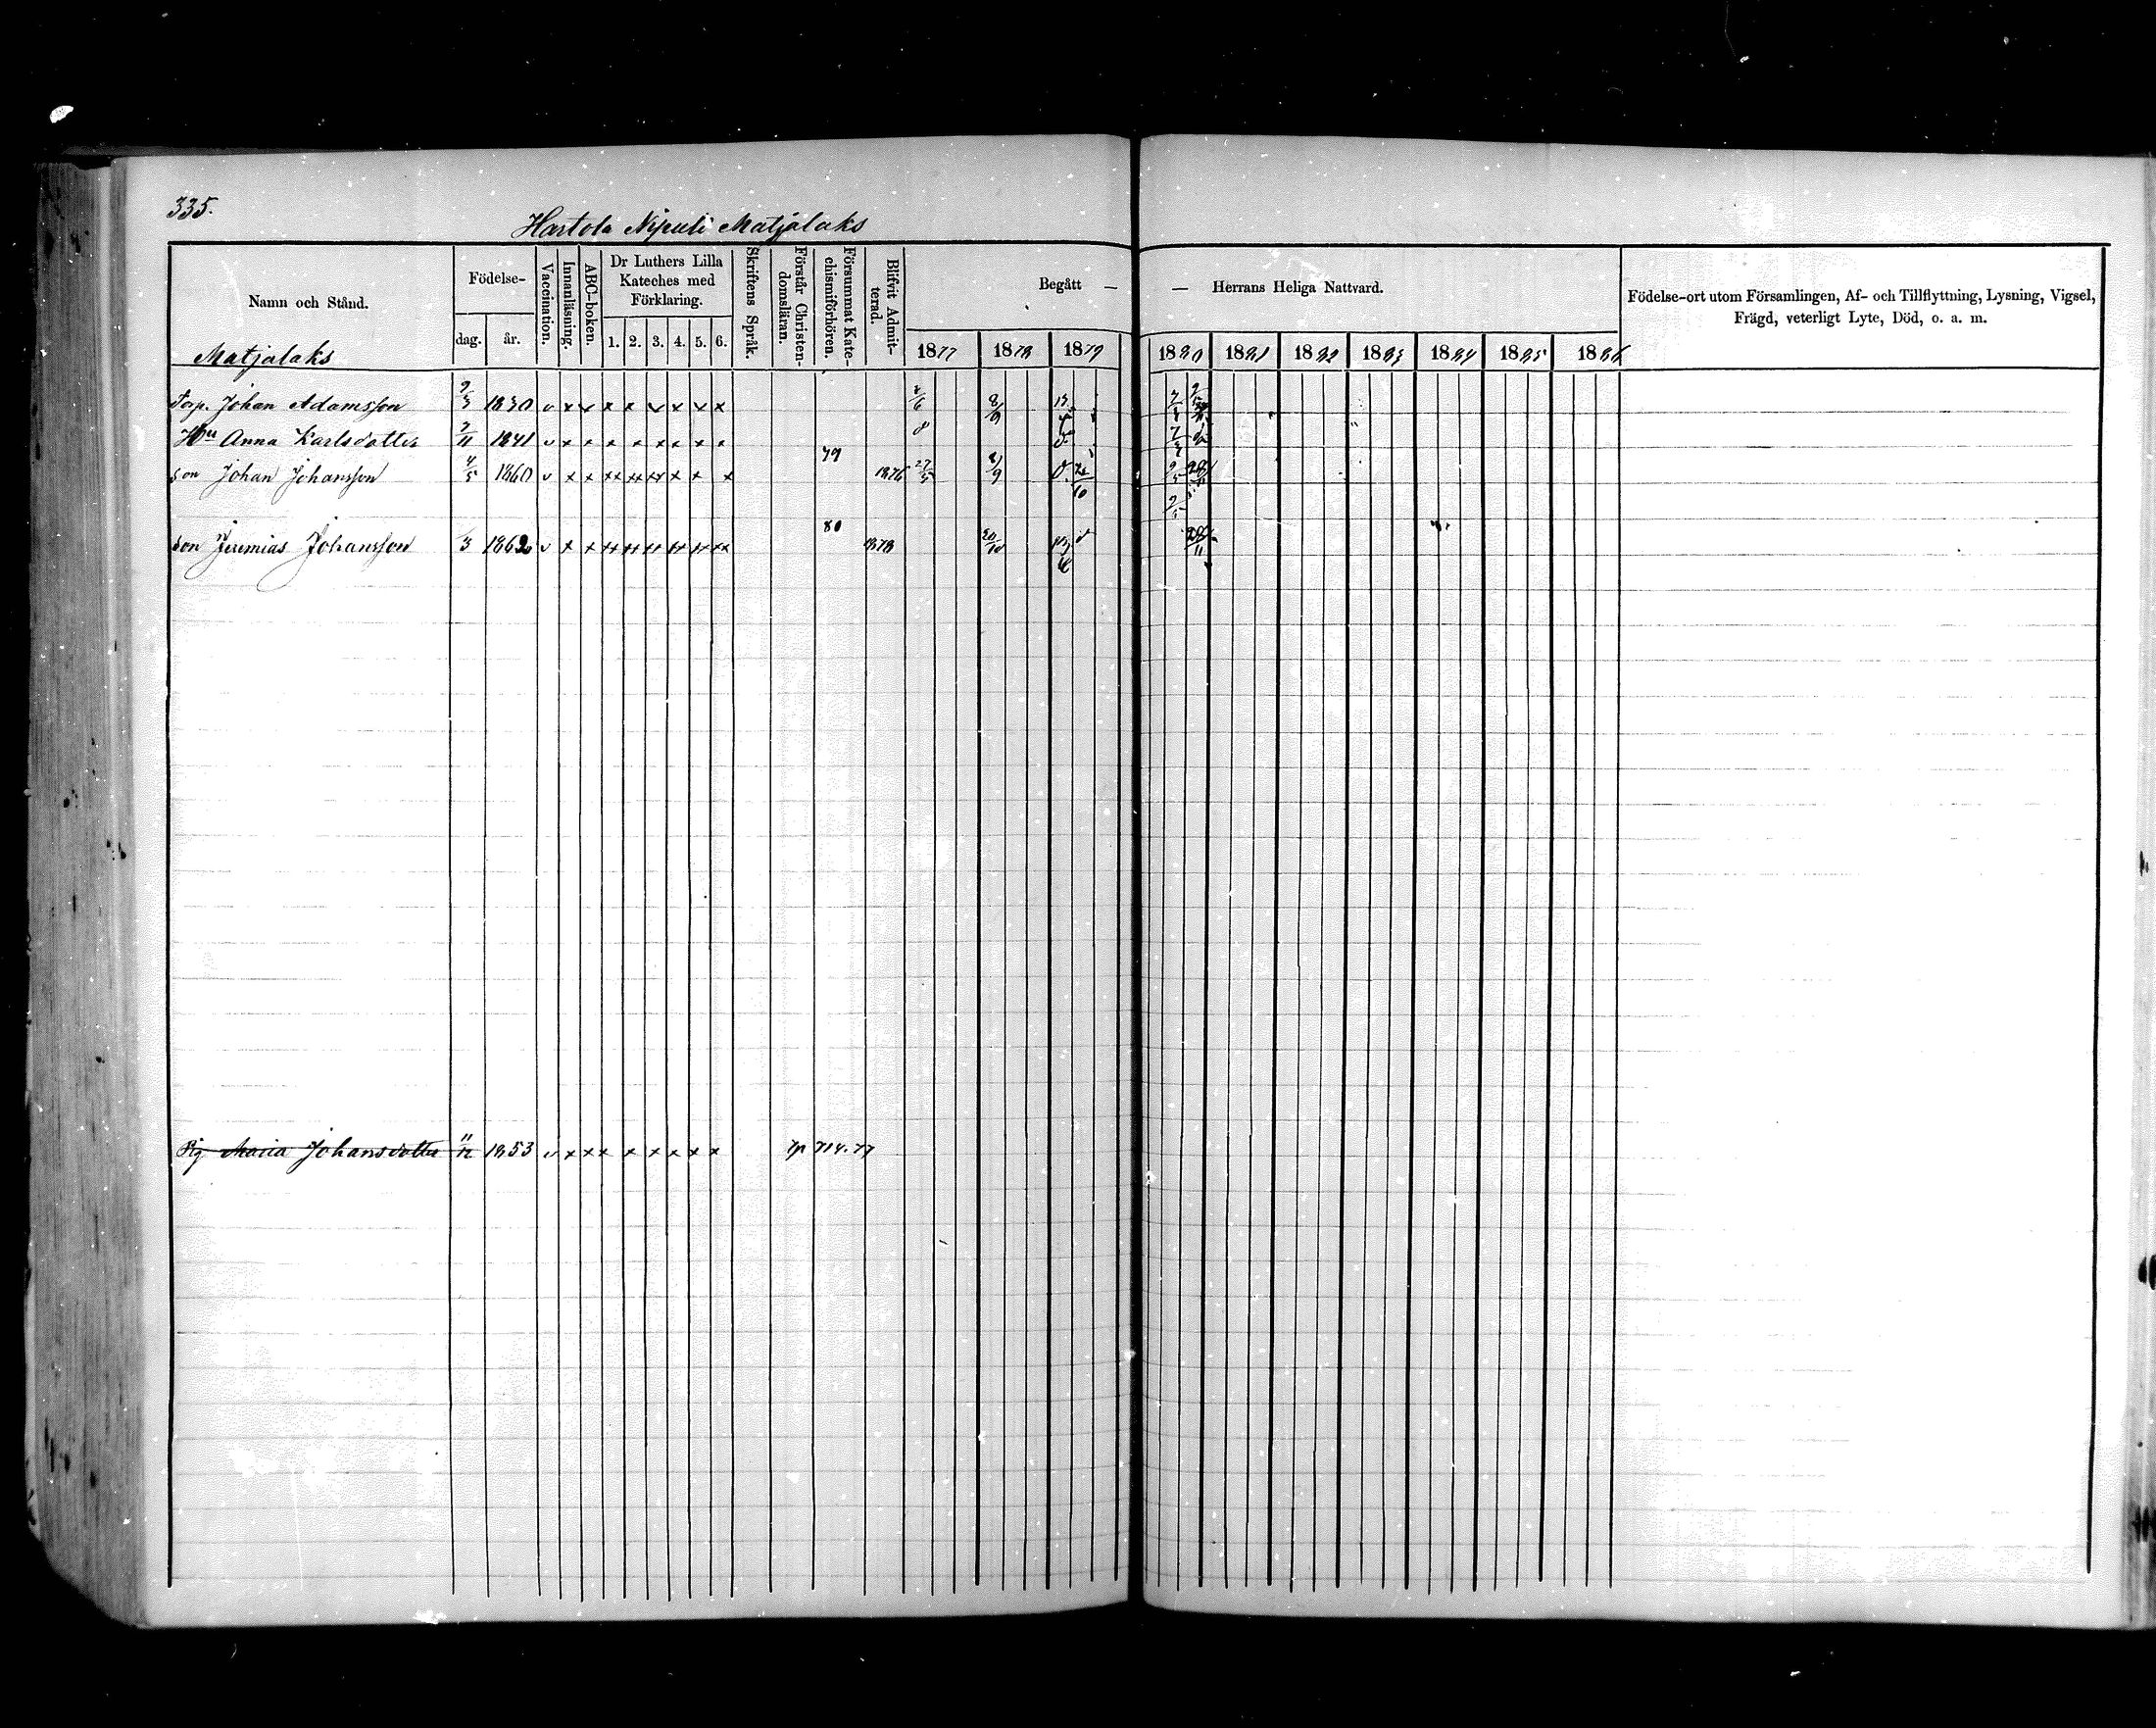 335.
Hartola Nipuli Matjalaks
Namn och Stånd.
Födelse-
dag. år.
Vaccination.
Innanläsning.
ABC-boken.
Dr Luthers Lilla
Kateches med
Förklaring.
1. 2. 3. 4. 5. 6.
Skriftens Språk.
Förstår Christen-
domsläran.
Försummat Kate-
chismiförhören.
Blifvit Admit-
terad.
Begått — — Herrans Heliga Nattvard.
1877 1878 1879 1880 1881 1882 1883 1884 1885 1886
Födelse-ort utom Församlingen, Af- och Tillflyttning, Lysning, Vigsel,
Frägd, veterligt Lyte, Död, o. a. m.
Matjalaks
Torp. Johan Adamsson 1830 v x v x x v x v x 8/9
Hu Anna Karlsdotter 1841 v x x x x x x x x
79
Son Johan Johansson 4/5 1860 v x x xx xx xx x x x 1876 27/5 8/9
80
Son Jeremias Johansson 1862 v x x xx xx xx xx xx xx 1878 20/10 28/11
Pig Maria Johansdotter 11/12 1853 v x x x x x x x x 714.77